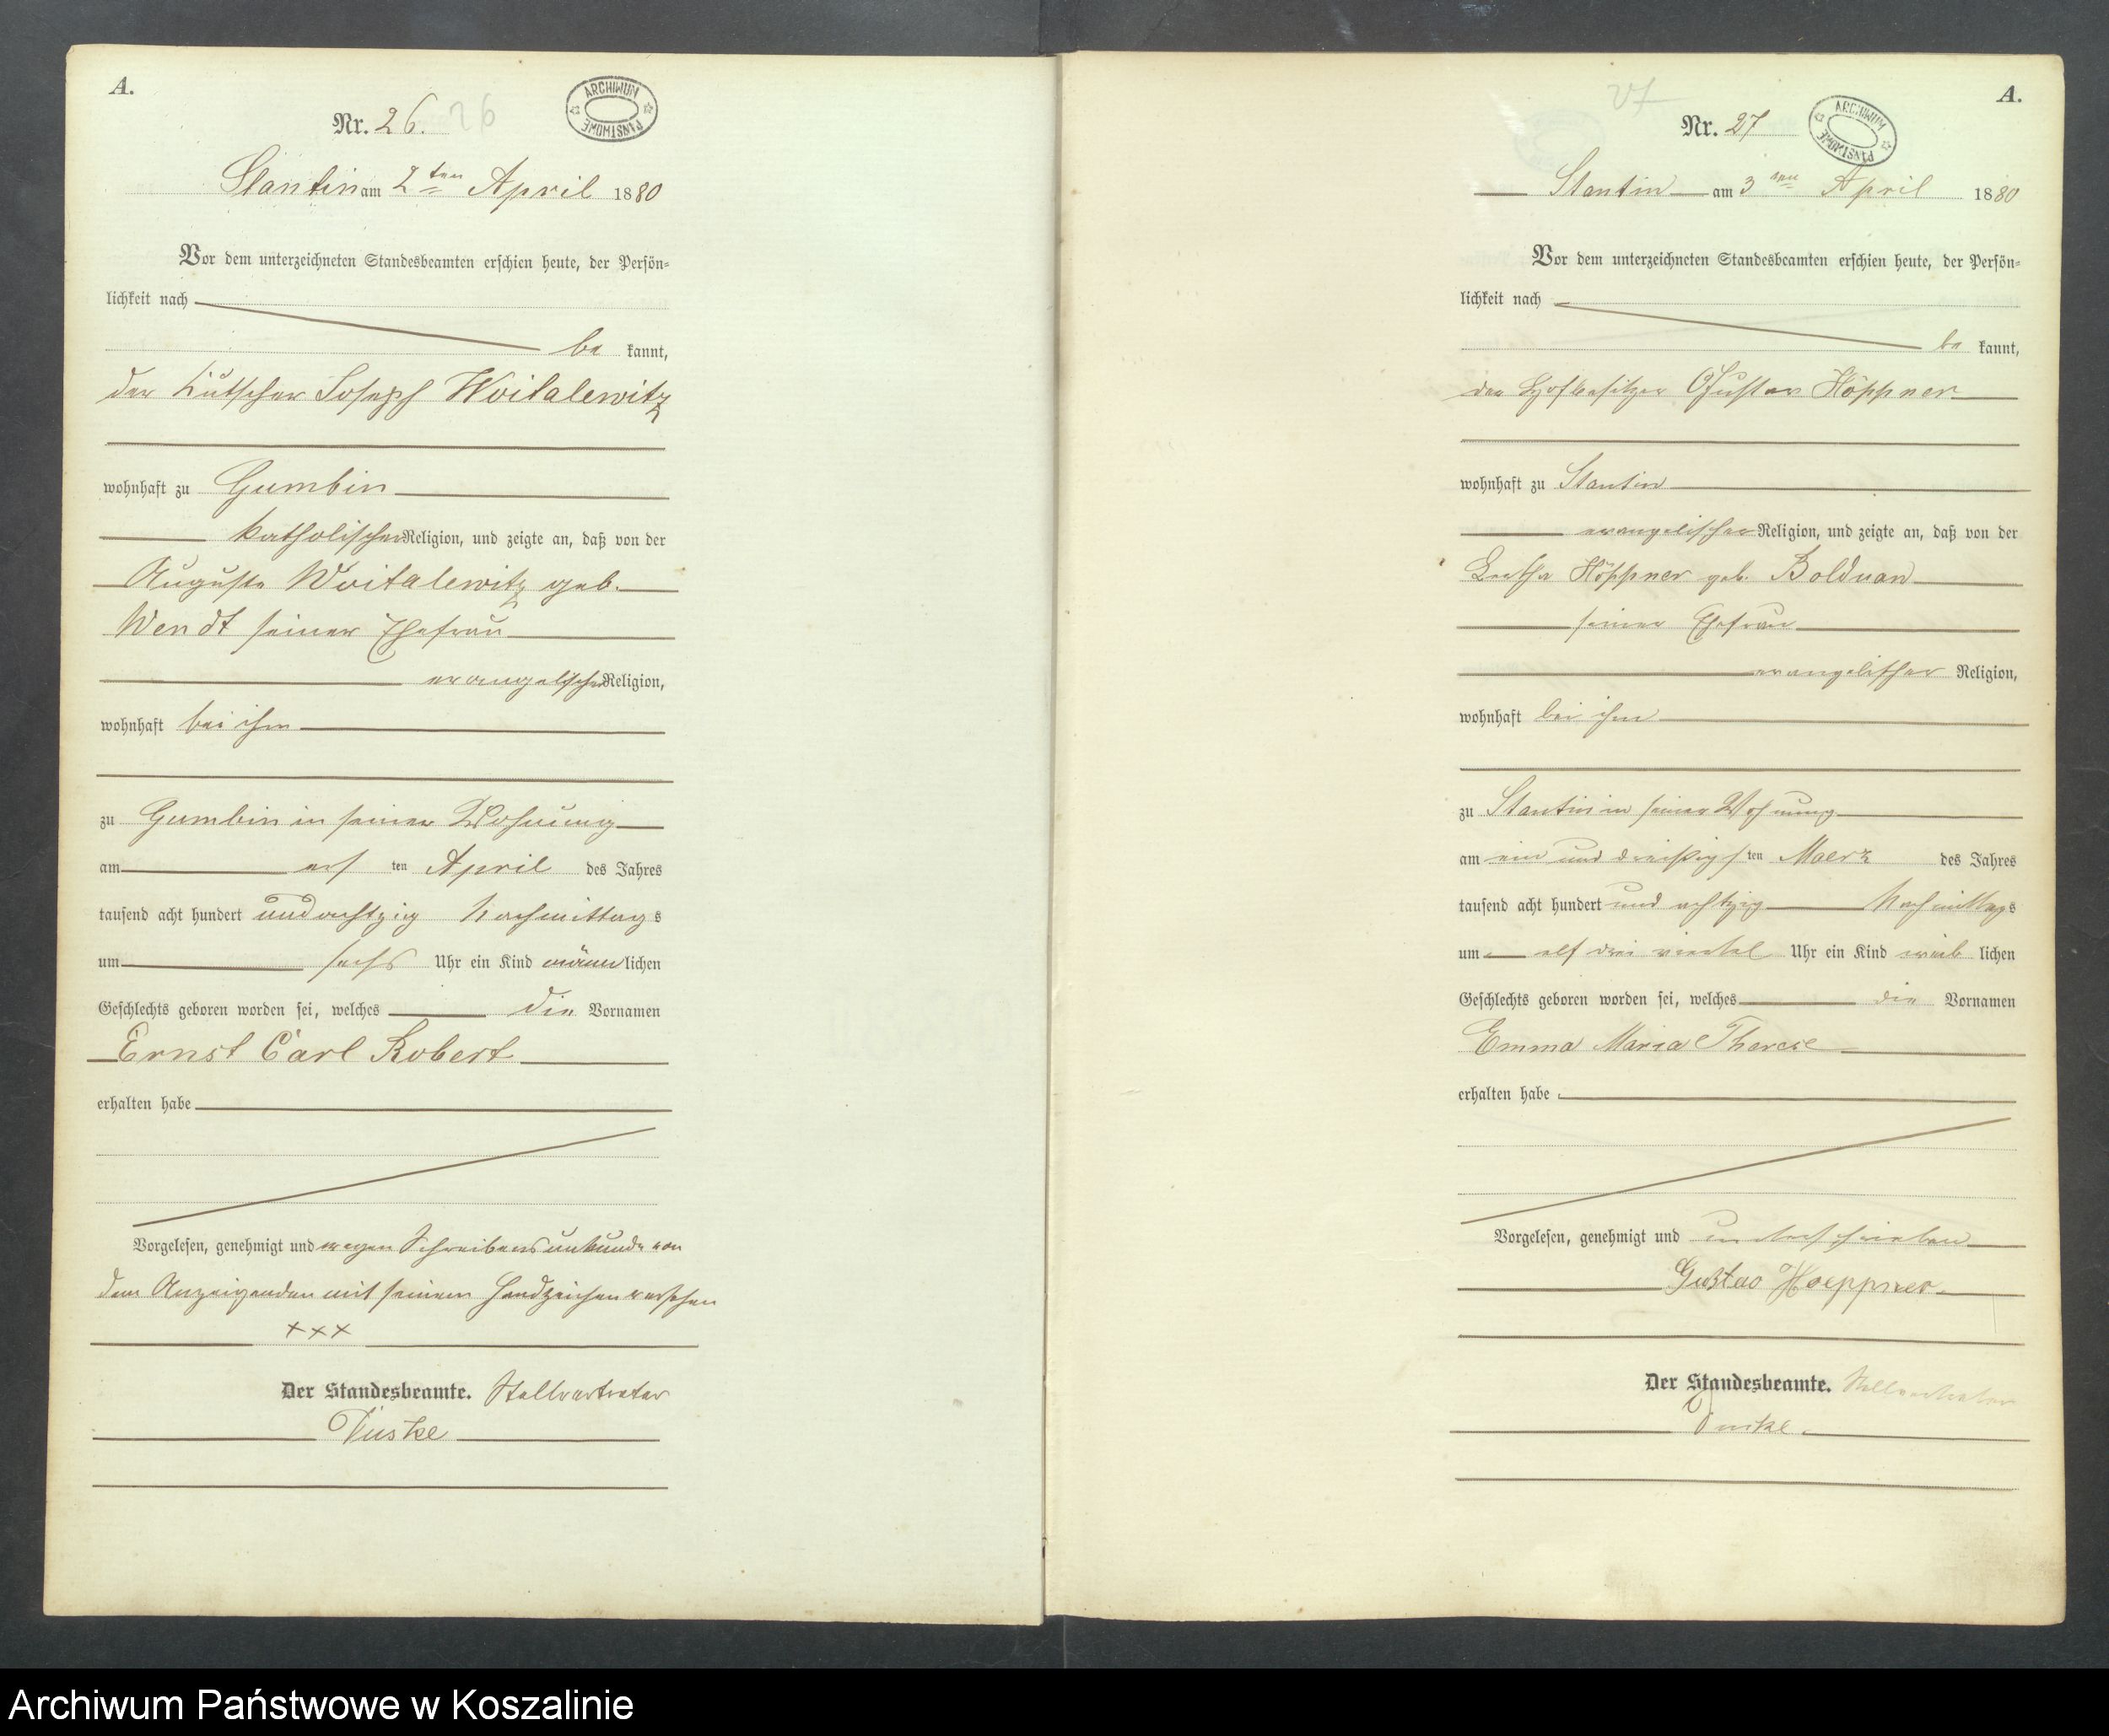 A.
Nr. 26. 26
ARCHIWUM PAŃSTWOWE
Stantin am 2ten April 1880
Vor dem unterzeichneten Standesbeamten erschien heute, der Persön-
lichkeit nach
be kannt,
der Kutscher Joseph Woitalewitz
wohnhaft zu Gumbin
katholischer Religion, und zeigte an, daß von der
Auguste Woitalewitz geb.
Wendt seiner Ehefrau
evangelischer Religion,
wohnhaft bei ihm
zu Gumbin in seiner Wohnung
am ersten April des Jahres
tausend acht hundert und achtzig Nachmittags
um sechs Uhr ein Kind männlichen
Geschlechts geboren worden sei, welches die Vornamen
Ernst Carl Robert
erhalten habe
Vorgelesen, genehmigt und wegen Schreibensunkunde von
dem Anzeigenden mit seinem Handzeichen versehen
+++
Der Standesbeamte. Stellvertreter
A.
27
Nr. 27
ARCHIWUM PAŃSTWOWE
Stantin am 3ten April 1880
Vor dem unterzeichneten Standesbeamten erschien heute, der Persön-
lichkeit nach
be kannt,
der Hofbesitzer Gustav Höppner
wohnhaft zu Stantin
evangelischer Religion, und zeigte an, daß von der
Höppner geb. Bolduan
seiner Ehefrau
evangelischer Religion,
wohnhaft bei ihm
zu Stantin in seiner Wohnung
am ein und dreißigsten Maerz des Jahres
tausend acht hundert und achtzig Nachmittags
um elf drei viertel Uhr ein Kind weiblichen
Geschlechts geboren worden sei, welches die Vornamen
Emma Maria Therese
erhalten habe
Vorgelesen, genehmigt und unterschrieben
Gustav Hoeppner
Der Standesbeamte. Stellvertreter
Archiwum Państwowe w Koszalinie